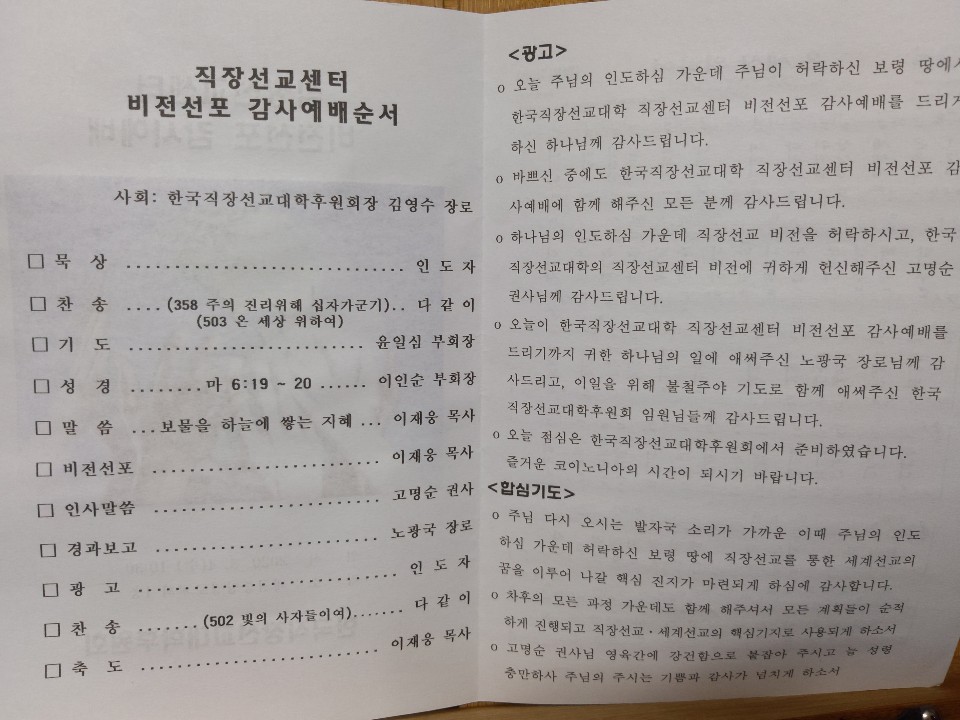 직장선교센터
비전선포 감사예배순서
사회: 한국직장선교대학후원회장 김영수 장로
□ 묵 상 .............................. 인 도 자
□ 찬 송 ....(358 주의 진리위해 십자가군기).. 다 같 이
(503 온 세상 위하여)
□ 기 도 .......................... 윤일심 부회장
□ 성 경 ........마 6:19 ~ 20 ...... 이인순 부회장
□ 말 씀 ...보물을 하늘에 쌓는 지혜 ... 이재웅 목사
□ 비전선포 ......................... 이재웅 목사
□ 인사말씀 ......................... 고명순 권사
□ 경과보고 ......................... 노광국 장로
□ 광 고 ............................ 인 도 자
□ 찬 송 ........(502 빛의 사자들이여)....... 다 같 이
□ 축 도 .......................... 이재웅 목사
<광고>
o 오늘 주님의 인도하심 가운데 주님이 허락하신 보령 땅에서
한국직장선교대학 직장선교센터 비전선포 감사예배를 드리게
하신 하나님께 감사드립니다.
o 바쁘신 중에도 한국직장선교대학 직장선교센터 비전선포 감
사예배에 함께 해주신 모든 분께 감사드립니다.
o 하나님의 인도하심 가운데 직장선교 비전을 허락하시고, 한국
직장선교대학의 직장선교센터 비전에 귀하게 헌신해주신 고명순
권사님께 감사드립니다.
o 오늘이 한국직장선교대학 직장선교센터 비전선포 감사예배를
드리기까지 귀한 하나님의 일에 애써주신 노광국 장로님께 감
사드리고, 이일을 위해 불철주야 기도로 함께 애써주신 한국
직장선교대학후원회 임원님들께 감사드립니다.
o 오늘 점심은 한국직장선교대학후원회에서 준비하였습니다.
즐거운 코이노니아의 시간이 되시기 바랍니다.
<합심기도>
o 주님 다시 오시는 발자국 소리가 가까운 이때 주님의 인도
하심 가운데 허락하신 보령 땅에 직장선교를 통한 세계선교의
꿈을 이루어 나갈 핵심 진지가 마련되게 하심에 감사합니다.
o 차후의 모든 과정 가운데도 함께 해주셔서 모든 계획들이 순적
하게 진행되고 직장선교·세계선교의 핵심기지로 사용되게 하소서
o 고명순 권사님 영육간에 강건함으로 붙잡아 주시고 늘 성령
충만하사 주님의 주시는 기쁨과 감사가 넘치게 하소서